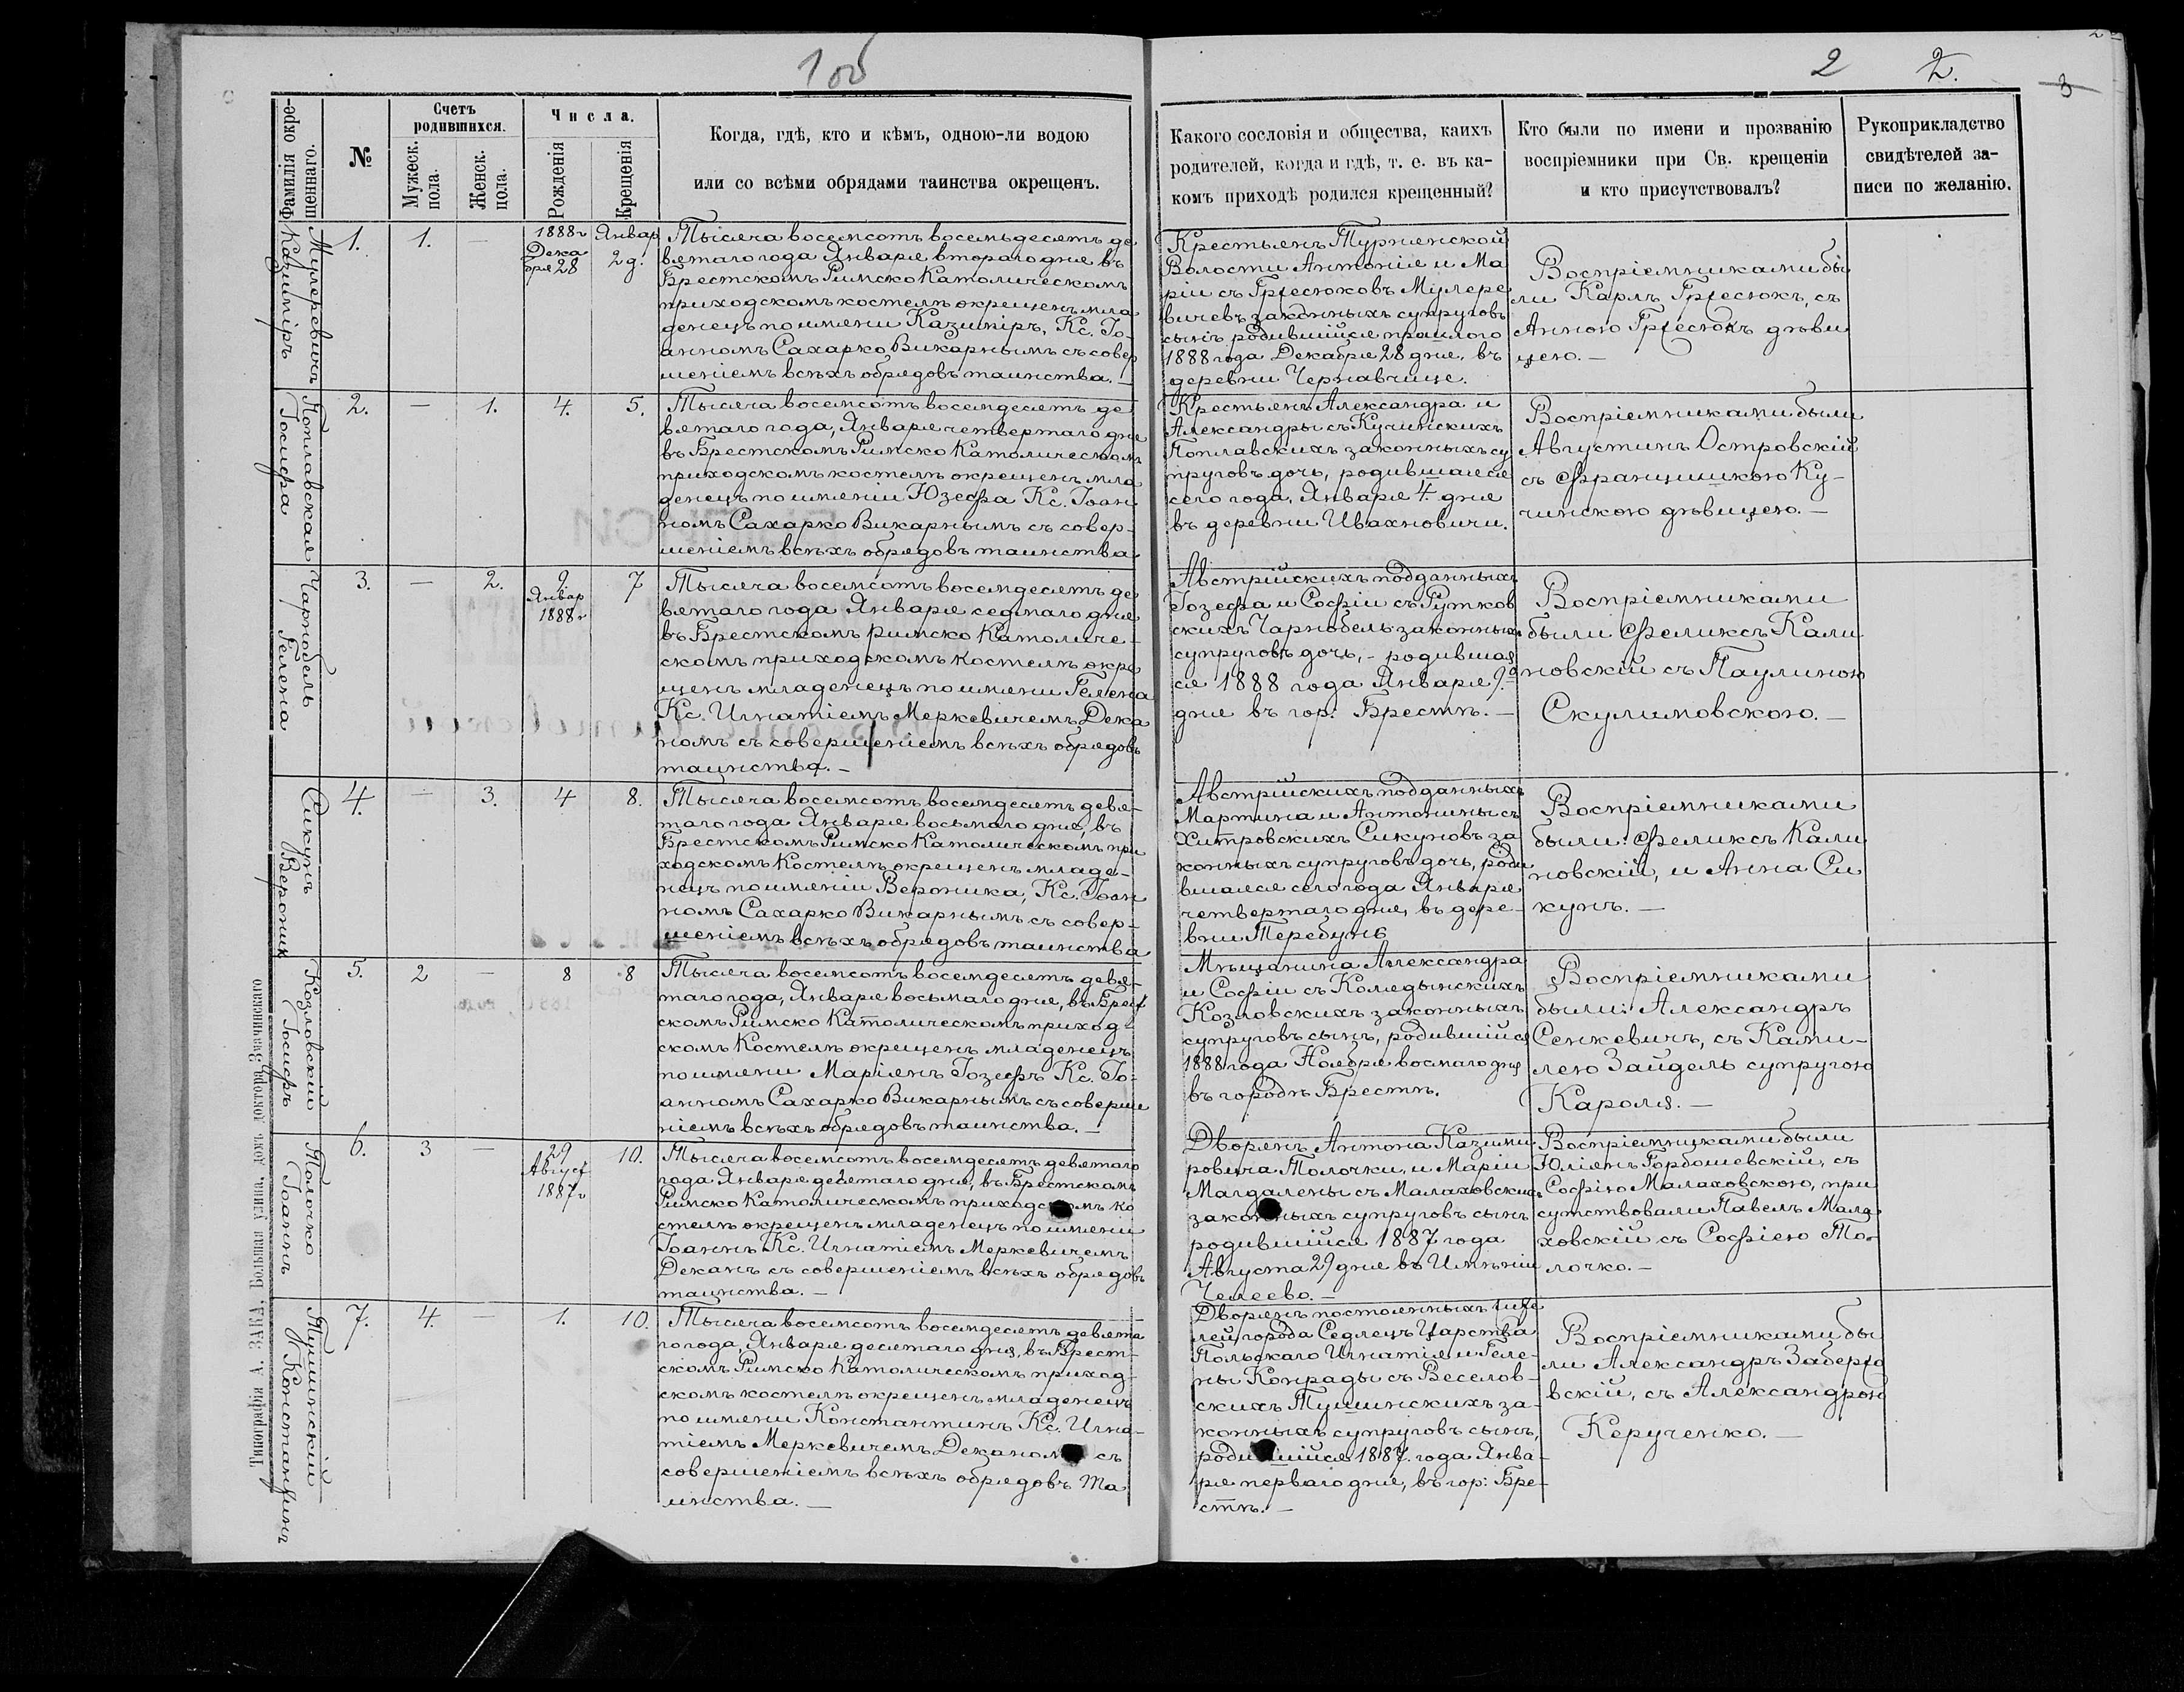 100
2 2. 3
Фамилія окре-
щеннаго.
№
Счетъ
родившихся.
Мужеск.
пола.
Женск.
пола.
Числа.
Рожденія
Крещенія
Когда, гдѣ, кто и кѣмъ, одною-ли водою
или со всѣми обрядами таинства окрещенъ.
Какого сословія и общества, какихъ
родителей, когда и гдѣ, т. е. въ ка-
комъ приходѣ родился крещенный?
Кто были по имени и прозванію
воспріемники при Св. крещеніи
и кто присутствовалъ?
Рукоприкладство
свидѣтелей за-
писи по желанію.
Мулеревичъ
Казимиръ
1. 1. —
1888 г
Дека
бря 28
Январ
2 д.
Тысяча восемсотъ восемьдесятъ де
вятаго года Января втораго дня въ
Брестскомъ Римско Католическомъ
приходскомъ костелѣ окрещенъ мла
денецъ по имени Казимиръ, Кс. Іо-
анномъ Сахарко Викарнымъ съ совер
шеніемъ всѣхъ обрядовъ таинства. —
Крестьянъ Турненской
Волости Антонія и Ма
ріи съ Грѣсюковъ Мулере
вичевъ законныхъ супруговъ
сынъ родившійся прошлого
1888 года Декабря 28 дня, въ
деревни Чернавчице.
Воспріемниками бы
ли Карлъ Грѣсюкъ, съ
Анною Грѣсюкъ дѣви
цею. —
Поплавская
Іосифа
2. — 1. 4. 5.
Тысяча восемсотъ восемдесятъ де
вятаго года, Января четвертаго дня
въ Брестскомъ Римско Католическомъ
приходскомъ костелѣ окрещенъ мла
денецъ по имѣніи Юзефа Кс. Іоан
номъ Сахарко Викарнымъ съ совер-
шеніемъ всѣхъ обрядовъ таинства
Крестьянъ Александра и
Александры съ Кучинскихъ
Поплавскихъ законныхъ су
пруговъ дочь, родившаяся
сего года, Января 4 дня
въ деревни Ивахновичи.
Воспріемниками были
Августинъ Островскій
съ Францишкою Ку-
чинскою дѣвицею. —
Чарнобель
Гелена
3. — 2.
9.
Январ
1888 г
7
Тысяча восемсотъ восемдесятъ де
вятаго года Января седмаго дня
въ Брестскомъ Римско Католиче-
скомъ приходскомъ костелѣ окре
щенъ младенецъ по имени Гелена
Кс. Игнатіемъ Меркевичемъ Дека
номъ съ совершеніемъ всѣхъ обрядовъ
таинства. —
Австрійскихъ подданныхъ
Іозефа и Софіи съ Рутков
скихъ Чарнобель законныхъ
супруговъ дочь, - родившая
ся 1888 года Января 9.го
дня въ гор: Брестѣ. —
Воспріемниками
были Феликсъ Кали
новскій съ Паулиною
Скулимовскою. —
Сикунъ
Вероника
4. — 3. 4 8.
Тысяча восемсотъ восемдесятъ девя-
таго года Января восьмаго дня, въ
Брестскомъ Римско Католическомъ при
ходскомъ Костелѣ окрещенъ младе-
нецъ по имѣніи Вероника, Кс. Іоан
номъ Сахарко Викарнымъ съ совер-
шеніемъ всѣхъ обрядовъ таинства
Австрійскихъ подданныхъ
Мартина и Антонины съ
Хитровскихъ Сикуновъ за
конныхъ супруговъ дочь, роди
вшаяся сего года Января
четвертаго дня, въ дере-
вни Теребунь
Воспріемниками
были: Феликсъ Кали
новскій, и Анна Си
кунъ. —
Козловскій
Іосифъ
5. 2 — 8 8
Тысяча восемсотъ восемдесятъ девя-
таго года, Января восьмаго дня, въ Брест
скомъ Римско Католическомъ приход-
скомъ Костелѣ окрещенъ младенецъ
по имени Маріянъ Іозефъ Кс. Іо-
анномъ Сахарко Викарнымъ съ соверше
ніемъ всѣхъ обрядовъ таинства. —
Мѣщанина Александра
и Софіи съ Колядынскихъ
Козловскихъ законныхъ
супруговъ сынъ, родившійся
1888 года Ноября восмаго дня
въ городѣ Брестѣ.
Воспріемниками
были: Александръ
Сенкевичъ, съ Ками-
лею Зайдель супругою
Кароля. —
Толочко
Іоаннъ
6. 3 —
29
Август
1887 г
10.
Тысяча восемсотъ восемдесятъ девятаго
года Января десятаго дня, въ Брестскомъ
Римско Католическомъ приходскомъ ко
стелѣ окрещенъ младенецъ по имени
Іоаннъ Кс. Игнатіемъ Меркевичемъ
Деканъ съ совершеніемъ всѣхъ обрядовъ
таинства. —
Дворянъ Антона Казими
ровича Толочки, и Маріи
Магдалены съ Малаховскихъ
законныхъ супруговъ сынъ
родившійся 1887 года
Августа 29 дня въ Имѣніи
Челеево. —
Воспріемниками были
Юліянъ Горбошевскій, съ
Софію Малаховскою, при
сутствовали Павелъ Мала
ховскій съ Софіею То-
лочко. —
Тушинскій
Константинъ
7. 4. — 1. 10.
Тысяча восемсотъ восемдесятъ девята
го года, Января десятаго дня, въ Брест-
скомъ Римско Католическомъ приход-
скомъ костелѣ окрещенъ младенецъ
по имени Константинъ Кс. Игна-
тіемъ Меркевичемъ Деканомъ съ
совершеніемъ всѣхъ обрядовъ Та
инства. —
Дворянъ постоянныхъ жите
лей города Седлецъ Царства
Польскаго Игнатія и Геле-
ны Конрады съ Веселов-
скихъ Тушинскихъ за-
конныхъ супруговъ сынъ,
родившійся 1887. года Янва-
ря перваго дня, въ гор: Бре-
стѣ. —
Воспріемниками бы
ли Александръ Заберзо
вскій, съ Александрою
Керученко. —
Типографія А. ЗАКА, Большая улица, домъ доктора Значинскаго